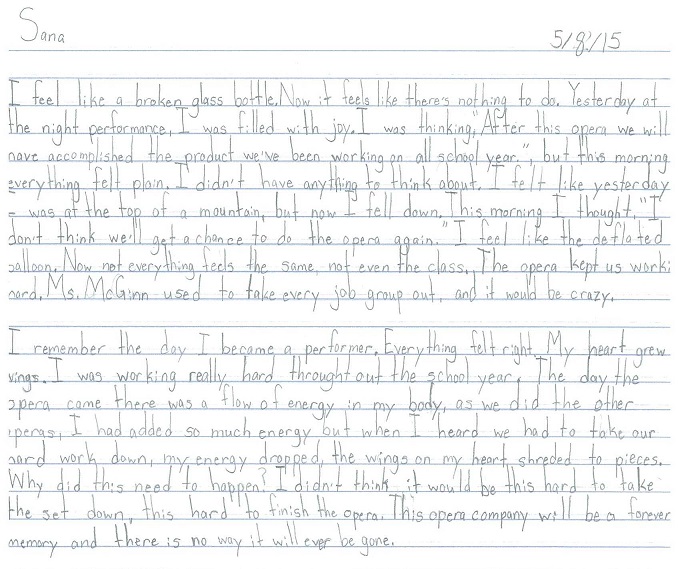 Sana
5/8/15
I feel like a broken glass bottle. Now it feels like there's nothing to do. Yesterday at
the night performance, I was filled with joy. I was thinking, "After this opera we will
have accomplished the product we've been working on all school year.", but this morning
everything felt plain. I didn't have anything to think about. I felt like yesterday
I was at the top of a mountain, but now I fell down. This morning I thought, "I
don't think we'll get a chance to do the opera again." I feel like the deflated
balloon. Now not everything feels the same, not even the class. The opera kept us worki
hard. Ms. McGinn used to take every job group out, and it would be crazy.
I remember the day I became a performer. Everything felt right. My heart grew
wings. I was working really hard throught out the school year. The day the
opera came there was a flow of energy in my body, as we did the other
operas, I had added so much energy but when I heard we had to take our
hard work down, my energy dropped, the wings on my heart shreded to pieces.
Why did this need to happen? I didn't think it would be this hard to take
the set down, this hard to finish the opera. This opera company will be a forever
memory and there is no way it will ever be gone.